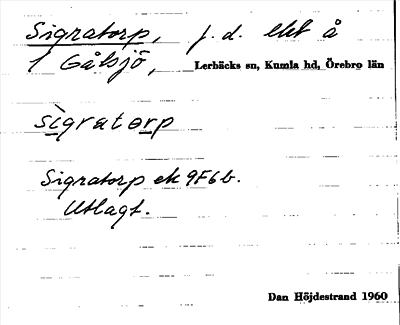 Sigratorp, f. d. ekt å
1 Gålsjö, Lerbäcks sn, Kumla hd, Örebro län
sìgratorp
Sigratorp ek 9F6b.
Utlagt.
Dan Höjdestrand 1960